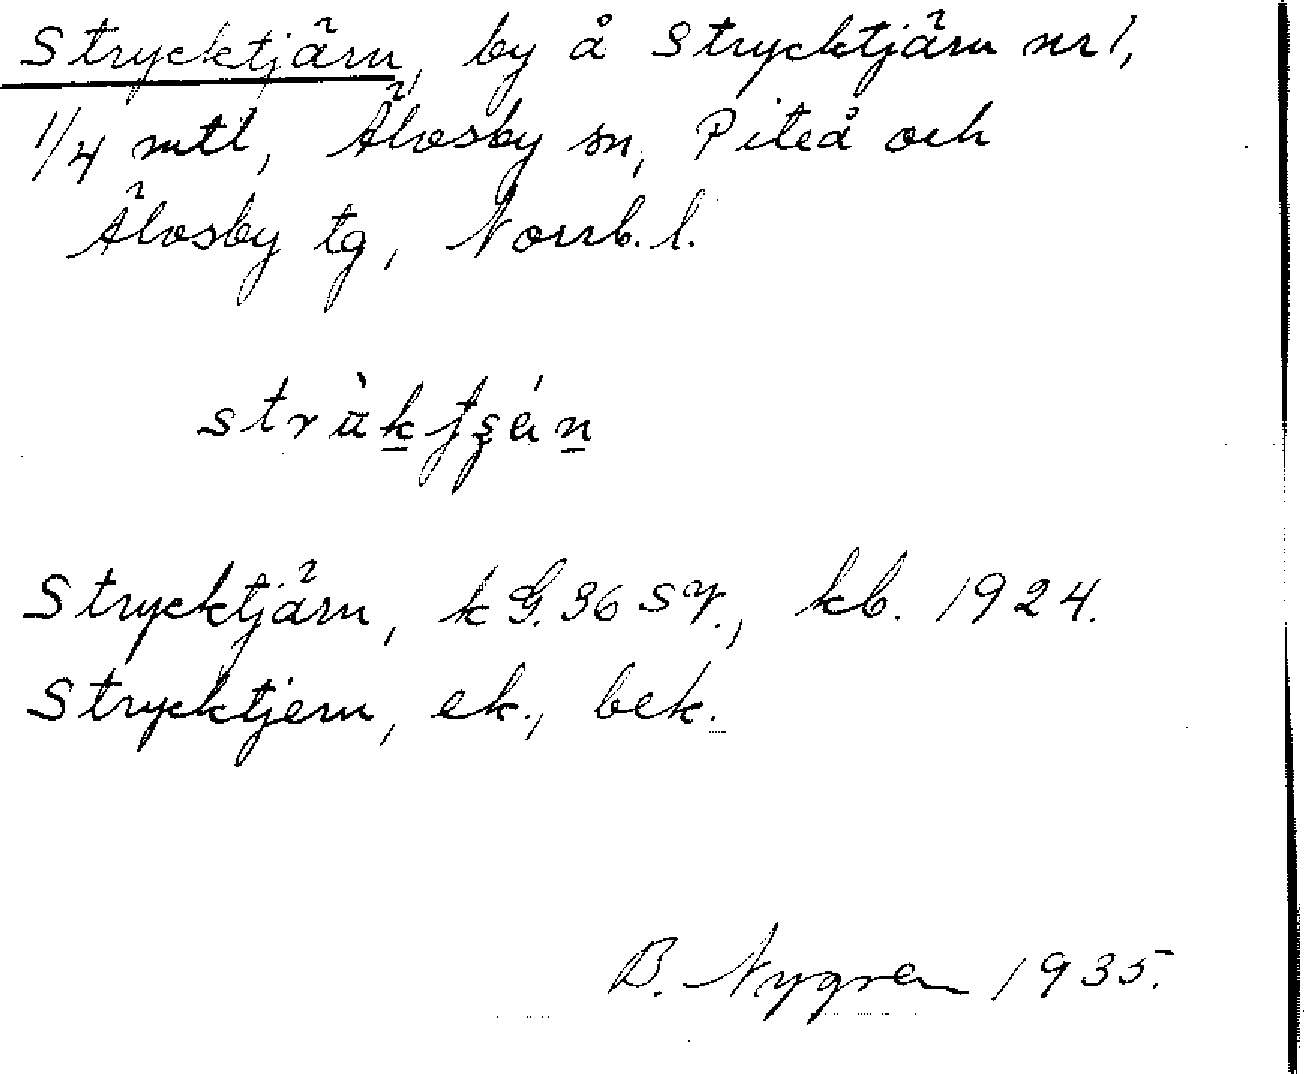 Strycktjärn, by å Strycktjärn nr 1,
1/4 mtl, Älvsby sn, Piteå och
Älvsby tg, Norrb. l.
Strycktjärn, k G. 36 SV., kb. 1924.
Strycktjern, ek., bek.
B. Nygren 1935.